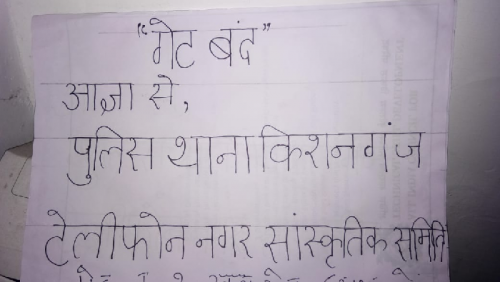 "गेट बंद"
आज्ञा से,
पुलिस थाना किशनगंज
टेलीफोन नगर सांस्कृतिक समिति